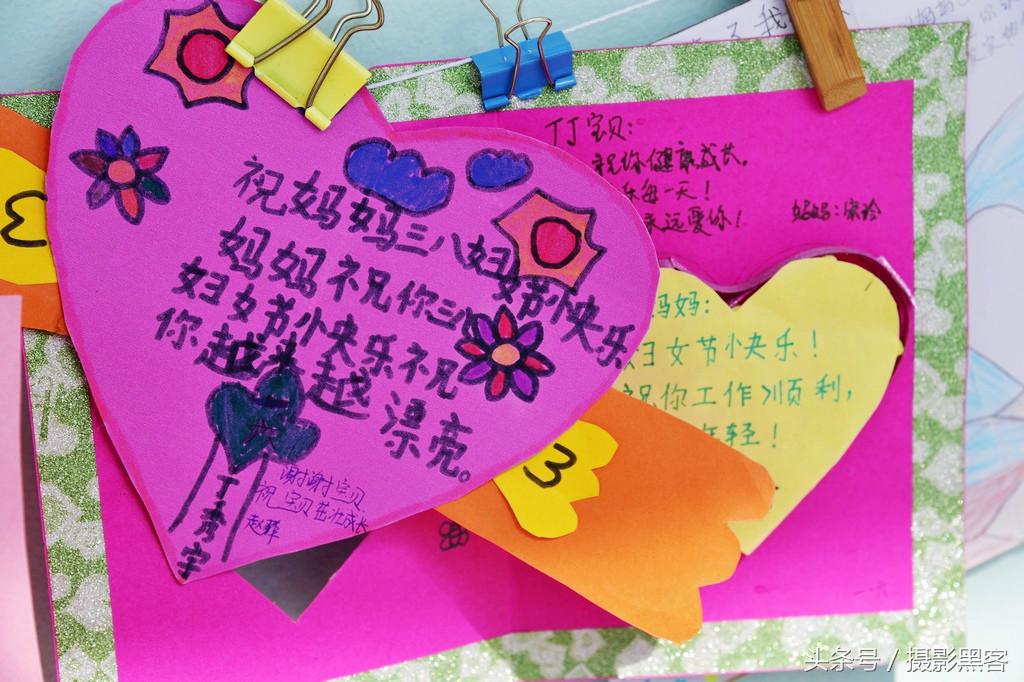 祝妈妈三八妇女节快乐
妈妈祝你三八
妇女节快乐祝
你越来越漂亮。
谢谢宝贝
祝宝贝茁壮成长
丁丁宝贝:
祝你健康成长。
乐每一天!
永远爱你!
妈妈:
妈妈:
妇女节快乐!
祝你工作顺利,
年轻!
3
3
头条号 / 摄影黑客